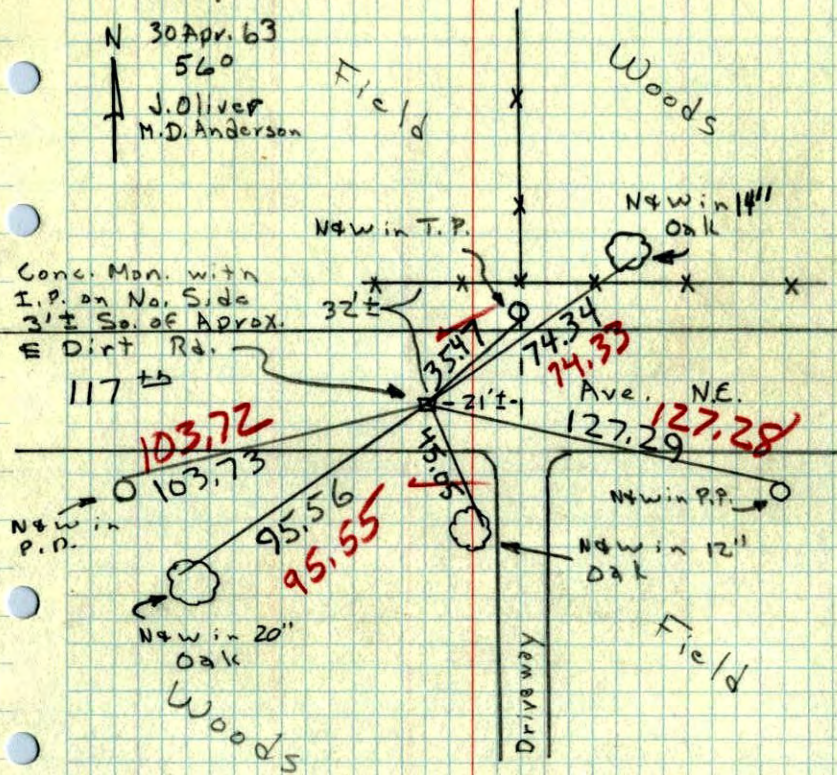 N 30 Apr. 63
56°
J. Oliver
M.D. Anderson
Field
Woods
N&W in T.P.
N&W in 14"
Oak
Conc. Mon. with
I.P. on No. Side
3'± So. of Aprox.
₵ Dirt Rd.
32'±
35.47
174.34
74.33
117 th
Ave. N.E.
21'±
103.72
103.73
127.29
127.28
45.05
95.56
95.55
N&W in
P.P.
N&W in P.P.
N&W in 12"
Oak
N&W in 20"
Oak
Woods
Driveway
Field